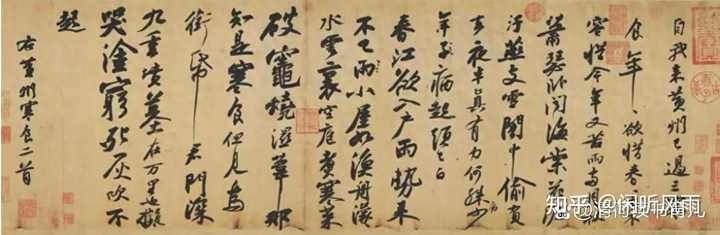 自我來黃州已過三寒
食年〻欲惜春〻去不
容惜今年又苦雨兩月秋
蕭瑟卧聞海棠花泥
汙燕支雪闇中偷負
去夜半真有力何殊少
年子病起頭已白
春江欲入户雨勢來
不已雨小屋如漁舟濛〻
水雲裏空庖煮寒菜
破竈燒濕葦那
知是寒食但見烏
銜帋君門深
九重墳墓在万里也擬
哭塗窮死灰吹不
起
右黃州寒食二首
知乎 @闲听风雨